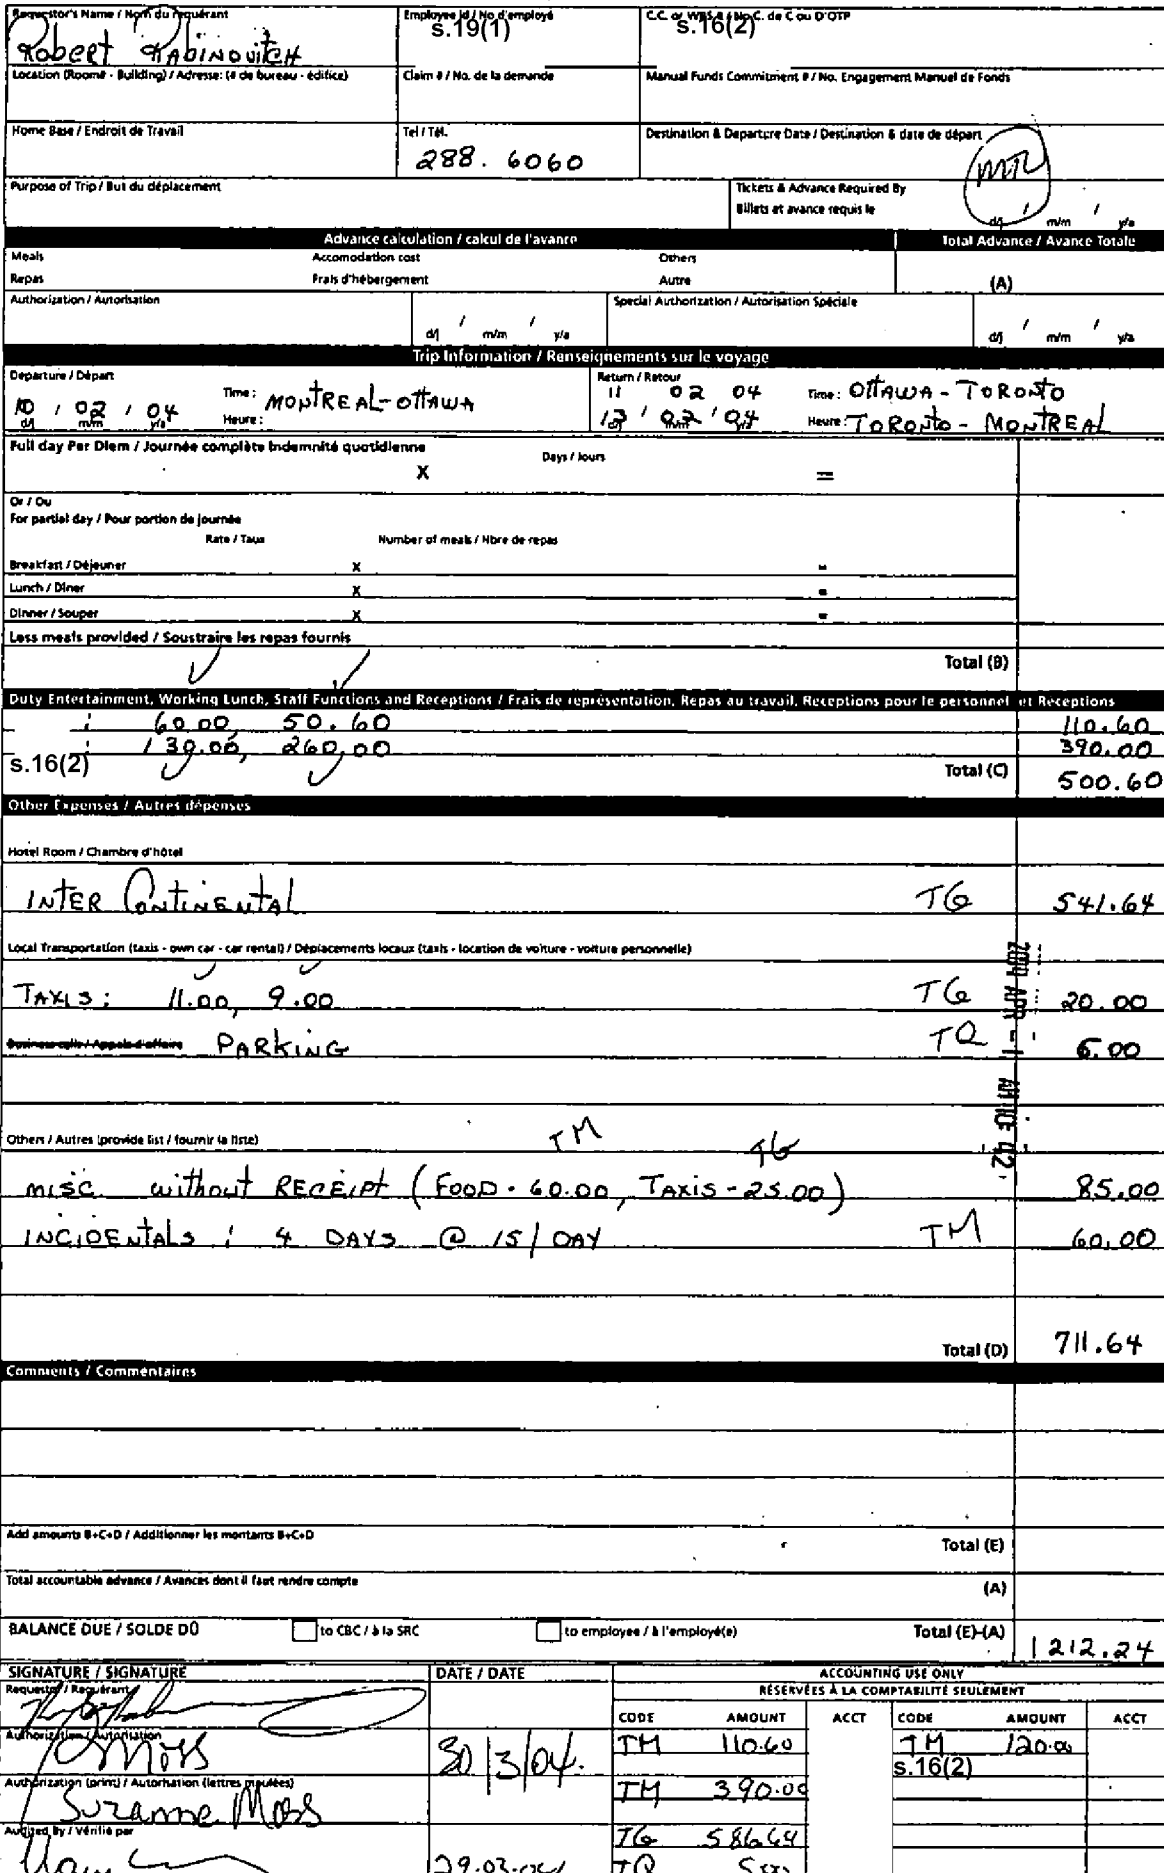 Requestor's Name / Nom du requérant
Employee Id / No d'employé
s.19(1)
C.C. or WBS # / No C. de C ou D'OTP
s.16(2)
Robert RABINOVITCH
Location (Room# - Building) / Adresse: (# de bureau - édifice)
Claim # / No. de la demande
Manual Funds Commitment # / No. Engagement Manuel de Fonds
Home Base / Endroit de Travail
Tel / Tél.
Destination & Departure Date / Destination & date de départ
288. 6060
MTL
Purpose of Trip / But du déplacement
Tickets & Advance Required By
Billets et avance requis le
d/j / m/m / y/a
Advance calculation / calcul de l'avance
Total Advance / Avance Totale
Meals Accomodation cost Others
Repas Frais d'hébergement Autre (A)
Authorization / Autorisation
Special Authorization / Autorisation Spéciale
d/j / m/m / y/a
d/j / m/m / y/a
Trip Information / Renseignements sur le voyage
Departure / Départ
Return / Retour
10 / 02 / 04
d/j m/m y/a
Time:
Heure:
MONTREAL-OTTAWA
11 02 04 Time: OTTAWA - TORONTO
13 / 02 / 04 Heure: TORONTO - MONTREAL
d/j m/m y/a
Full day Per Diem / Journée complète Indemnité quotidienne
Days / Jours
X =
Or / Ou
For partial day / Pour portion de journée
Rate / Taux Number of meals / Nbre de repas
Breakfast / Déjeuner x =
Lunch / Dîner x =
Dinner / Souper x =
Less meals provided / Soustraire les repas fournis
Total (B)
Duty Entertainment, Working Lunch, Staff Functions and Receptions / Frais de représentation, Repas au travail, Receptions pour le personnel et Réceptions
: 60.00, 50.60 110.60
: 130.00, 260.00 390.00
s.16(2)
Total (C) 500.60
Other Expenses / Autres dépenses
Hotel Room / Chambre d'hôtel
INTER CONTINENTAL TG 541.64
Local Transportation (taxis - own car - car rental) / Déplacements locaux (taxis - location de voiture - voiture personnelle)
TAXIS: 11.00, 9.00 TG 20.00
Business calls / Appels d'affaire PARKING TQ 5.00
2004 APR -1 AM 10: 02
Others / Autres (provide list / fournir la liste)
TM TG
MISC. without RECEIPT (FOOD - 60.00, TAXIS - 25.00) 85.00
INCIDENTALS : 4 DAYS @ 15/DAY TM 60.00
Total (D) 711.64
Comments / Commentaires
Add amounts B+C+D / Additionner les montants B+C+D
Total (E)
Total accountable advance / Avances dont il faut rendre compte
(A)
BALANCE DUE / SOLDE DÛ to CBC / à la SRC to employee / à l'employé(e) Total (E)-(A) 1212.24
SIGNATURE / SIGNATURE DATE / DATE ACCOUNTING USE ONLY
RÉSERVÉES À LA COMPTABILITÉ SEULEMENT
Requestor / Requérant
CODE AMOUNT ACCT CODE AMOUNT ACCT
Authorization / Autorisation
SMoss 30/3/04.
TM 110.60 TM 120.00
s.16(2)
Authorization (print) / Autorisation (lettres moulées)
Suzanne Moss
TM 390.00
Audited by / Vérifié par
TG 586.64
29.03.04
TQ 5.00